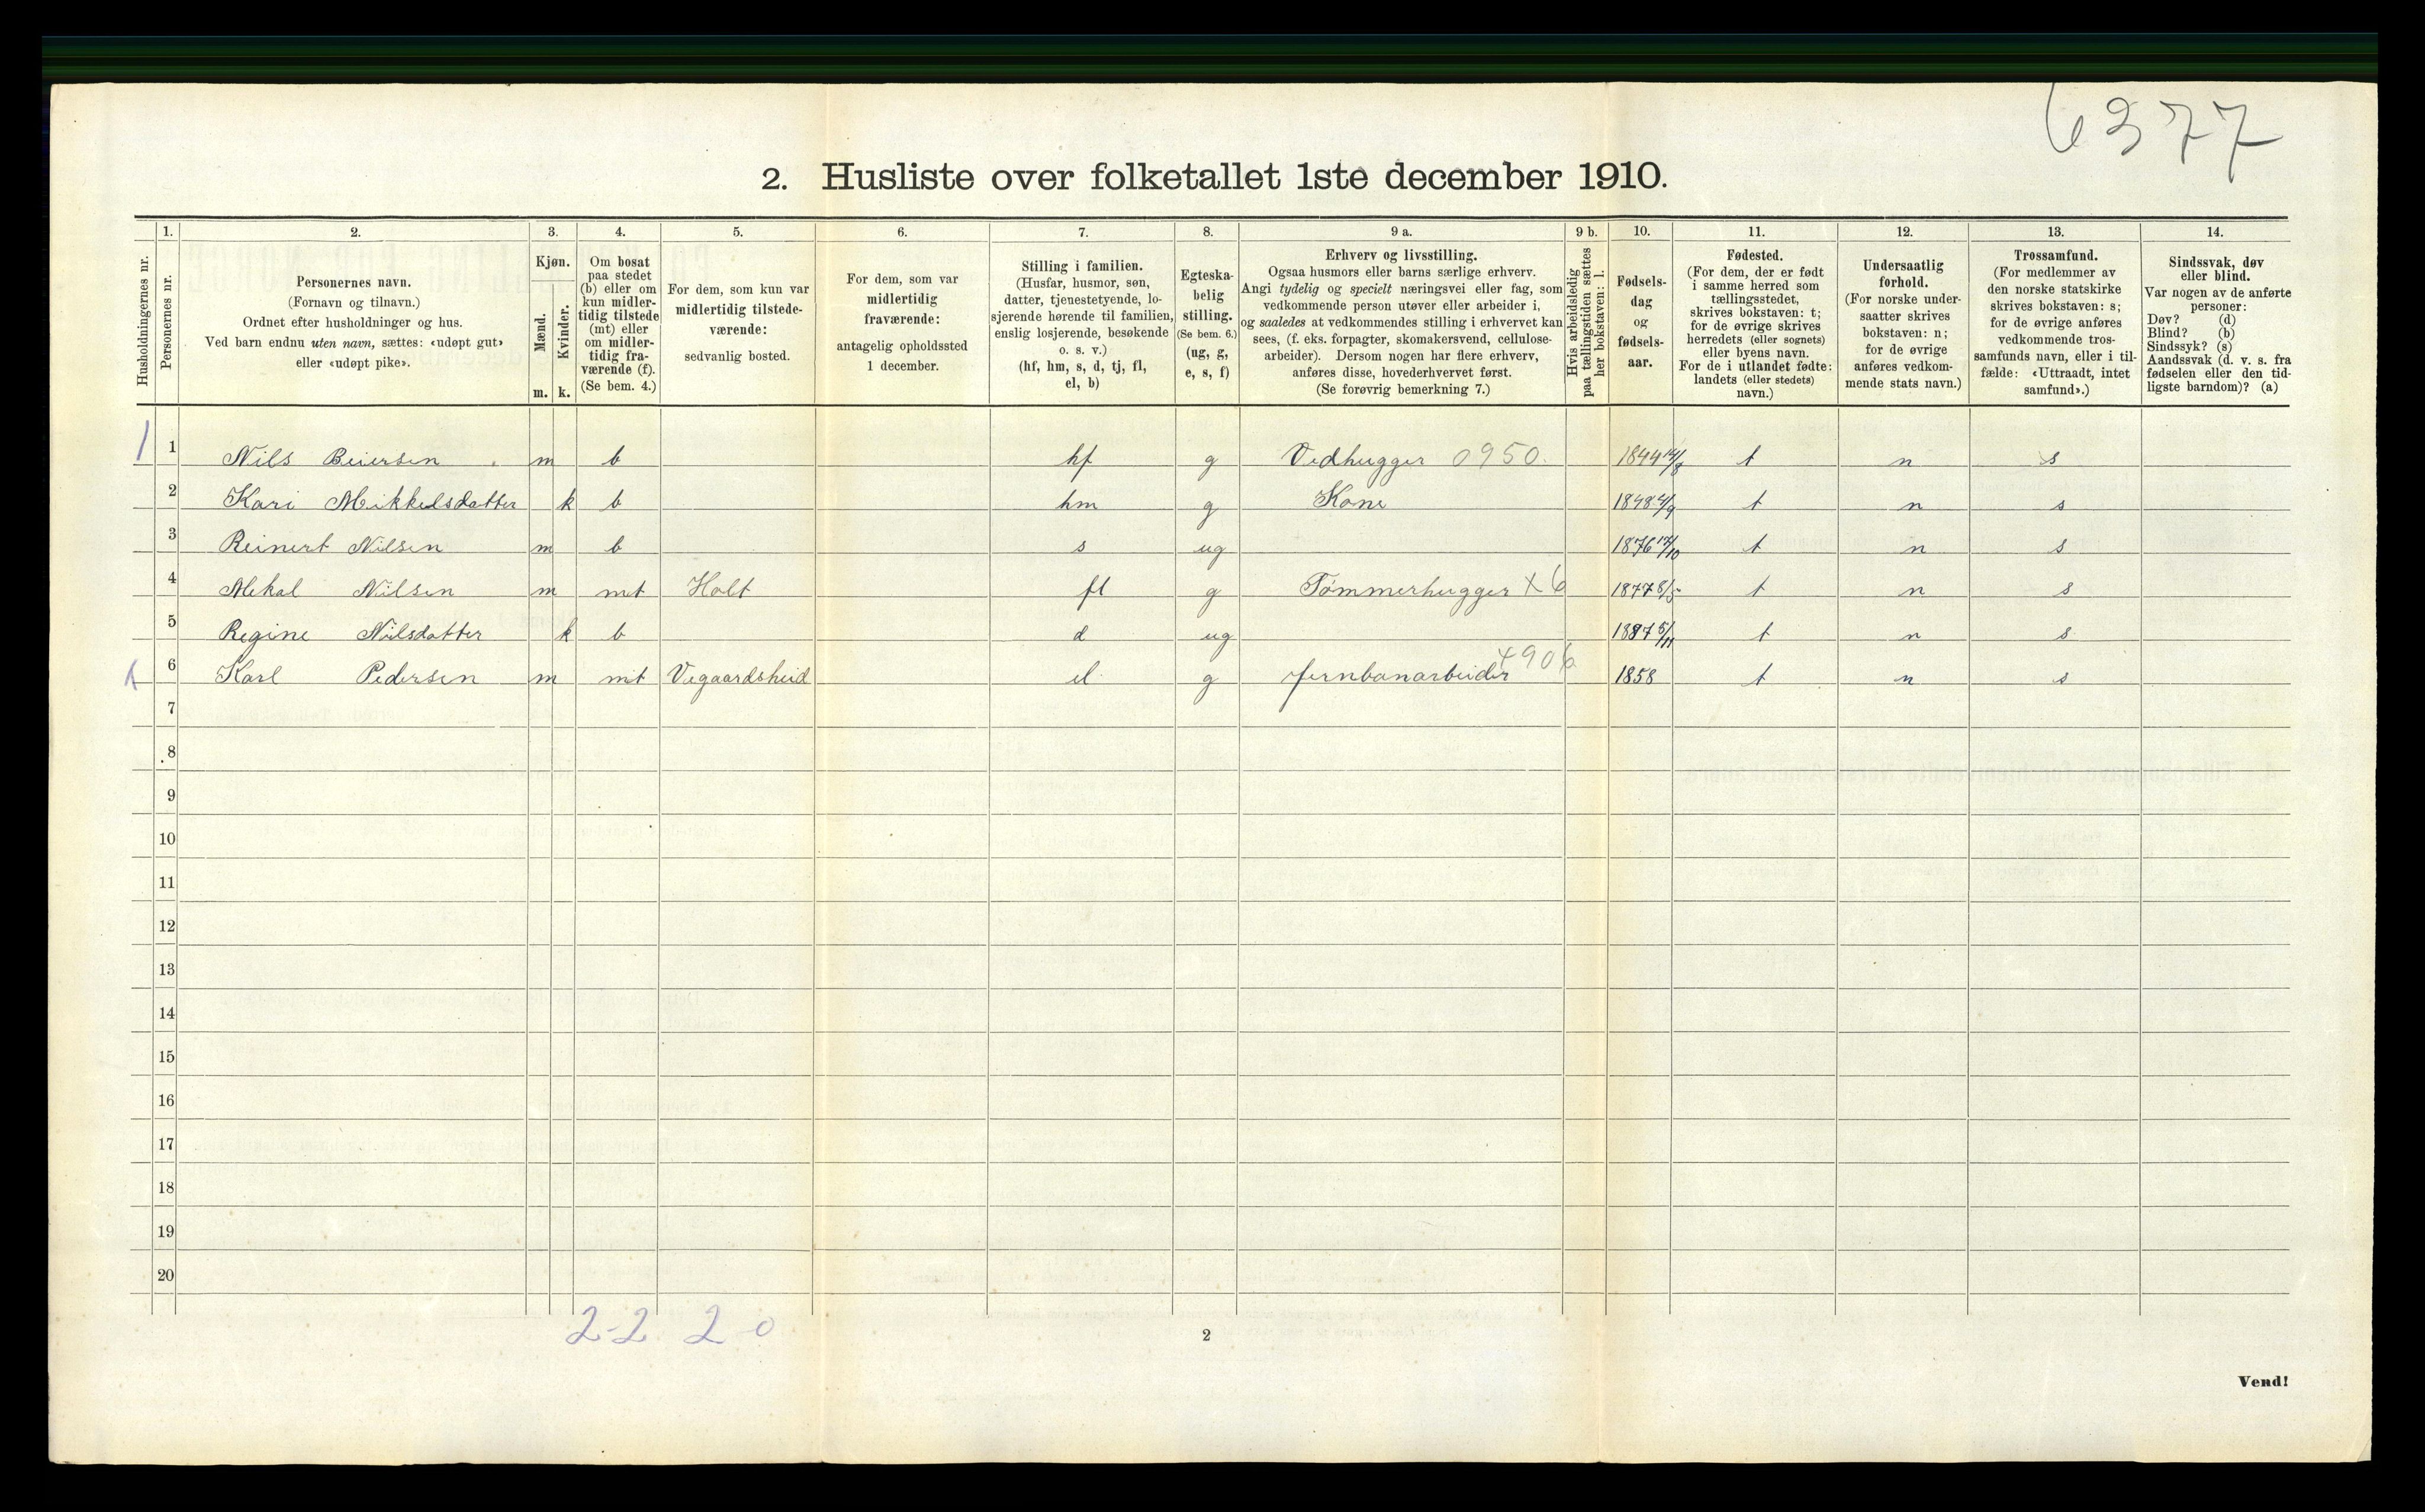 6377
2. Husliste over folketallet 1ste december 1910.
Husholdningernes nr.
1. Personernes nr.
2. Personernes navn.
(Fornavn og tilnavn.)
Ordnet efter husholdninger og hus.
Ved barn endnu uten navn, sættes: «udøpt gut»
eller «udøpt pike».
3. Kjøn.
Mænd. m.
Kvinder. k.
4. Om bosat
paa stedet
(b) eller om
kun midler-
tidig tilstede
(mt) eller
om midler-
tidig fra-
værende (f).
(Se bem. 4.)
5. For dem, som kun var
midlertidig tilstede-
værende:
sedvanlig bosted.
6. For dem, som var
midlertidig
fraværende:
antagelig opholdssted
1 december.
7. Stilling i familien.
(Husfar, husmor, søn,
datter, tjenestetyende, lo-
sjerende hørende til familien,
enslig losjerende, besøkende
o. s. v.)
(hf, hm, s, d, tj, fl,
el, b)
8. Egteska-
belig
stilling.
(Se bem. 6.)
(ug, g,
e, s, f)
9 a. Erhverv og livsstilling.
Ogsaa husmors eller barns særlige erhverv.
Angi tydelig og specielt næringsvei eller fag, som
vedkommende person utøver eller arbeider i,
og saaledes at vedkommendes stilling i erhvervet kan
sees, (f. eks. forpagter, skomakersvend, cellulose-
arbeider). Dersom nogen har flere erhverv,
anføres disse, hovederhvervet først.
(Se forøvrig bemerkning 7.)
9 b. Hvis arbeidsledig
paa tællingstiden sættes
her bokstaven: l.
10. Fødsels-
dag
og
fødsels-
aar.
11. Fødested.
(For dem, der er født
i samme herred som
tællingsstedet,
skrives bokstaven: t;
for de øvrige skrives
herredets (eller sognets)
eller byens navn.
For de i utlandet fødte:
landets (eller stedets)
navn.)
12. Undersaatlig
forhold.
(For norske under-
saatter skrives
bokstaven: n;
for de øvrige
anføres vedkom-
mende stats navn.)
13. Trossamfund.
(For medlemmer av
den norske statskirke
skrives bokstaven: s;
for de øvrige anføres
vedkommende tros-
samfunds navn, eller i til-
fælde: «Uttraadt, intet
samfund».)
14. Sindssvak, døv
eller blind.
Var nogen av de anførte
personer:
Døv? (d)
Blind? (b)
Sindssyk? (s)
Aandssvak (d. v. s. fra
fødselen eller den tid-
ligste barndom)? (a)
1 1 Nils Beiersen m b hf g Vedhugger 0950. 1844 14/8 t n s
2 Kari Mikkelsdatter k b hm g Kone 1848 4/9 t n s
3 Reinert Nilsen m b s ug 1876 12/10 t n s
4 Mekal Nilsen m mt Holt fl g Tømmerhugger x 6 1877 8/5 t n s
5 Regine Nilsdatter k b d ug 1887 5/11 t n s
6 Karl Pedersen m mt Vegaardsheid el g Jernbanarbeider 4906 1858 t n s
7
8
9
10
11
12
13
14
15
16
17
18
19
20
2-2 2-0
2
Vend!